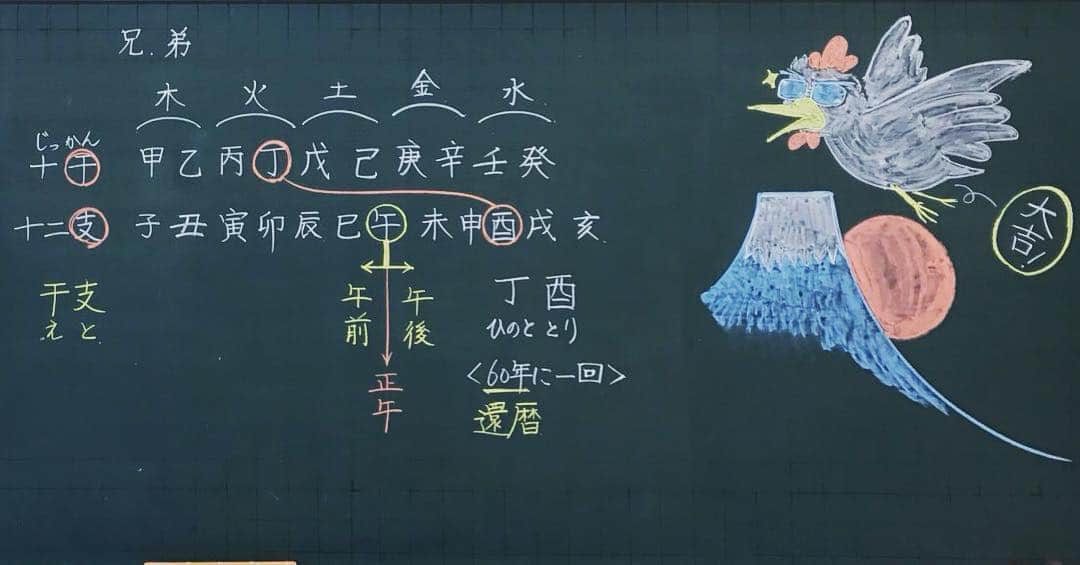 兄.弟
木 火 土 金 水
じっかん
十干 甲乙丙丁戊己庚辛壬癸
十二支 子丑寅卯辰巳午未申酉戌亥
干支
えと
午前
午後
正午
丁酉
ひのととり
<60年に一回>
還暦
大吉!